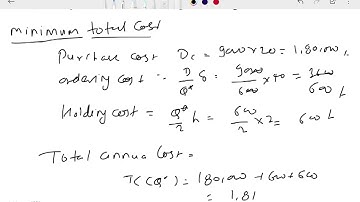 minimum total cost
Purchase cost Dc = 9000x20 = 1,80,000 L
ordering cost :- D/Q* S = 9000/600 x 40 = 3600/600 L
Holding cost = Q*/2 h = 600/2 x 2 = 600 L
Total annual cost =
TC(Q*) = 180,000 + 600 + 600
= 1,81